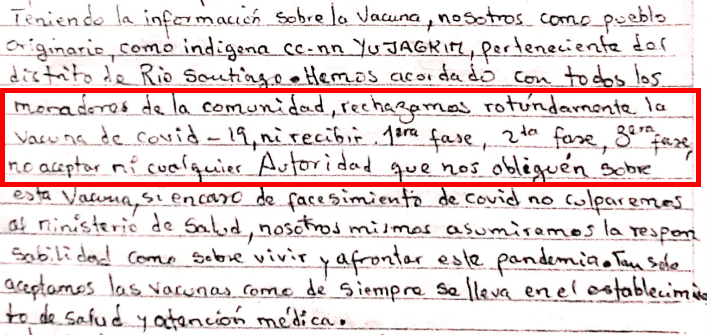 Teniendo la información sobre la vacuna, nosotros como pueblo
originario, como indígena cc.nn YUJAGKIM, perteneciente del
distrito de Rio Santiago. Hemos acordado con todos los
moradores de la comunidad, rechazamos rotúndamente la
vacuna de covid-19, ni recibir 1era fase, 2da fase, 3era fase,
no aceptar ni cualquier Autoridad que nos obliguén sobre
esta vacuna, si encaso de facesimiento de covid no culparemos
al ministerio de salud, nosotros mismos asumiremos la respon
sabilidad como sobre vivir y afrontar este pandemia. Tan solo
aceptamos las vacunas como de siempre se lleva en el establecimien
to de salud y atención médica.